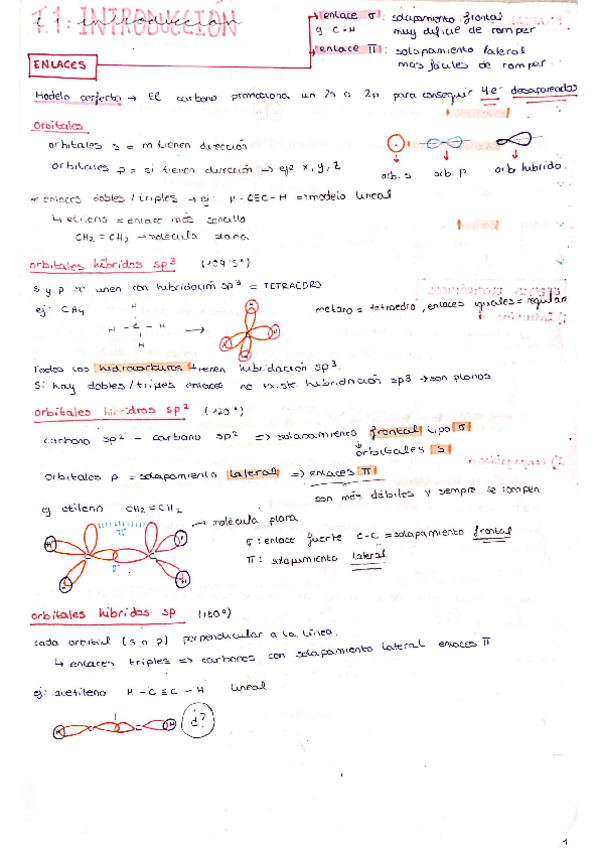 T.1: INTRODUCCIÓN
enlace σ : solapamiento frontal
eg C-H muy difícil de romper
enlace π : solapamiento lateral
más fáciles de romper
ENLACES
Modelo perfecto → El carbono promociona un 2s a 2p para conseguir 4e⁻ desapareados
Orbitales
orbitales s = no tienen dirección
orbitales p = si tienen dirección → eje x, y, z
orb. s orb p orb hibrido.
enlaces dobles / triples → ej: H-C≡C-H => modelo lineal
↳ etileno = enlace más sencillo
CH₂=CH₂ → molécula plana
orbitales híbridos sp³ (109'5°)
s y p se unen con hibridación sp³ = TETRAEDRO
ej: CH₄
metano = tetraedro, enlaces iguales = regular
H
H - C - H
H
Todos los hidrocarburos tienen hibridación sp³.
Si hay dobles / triples enlaces no existe hibridación sp3 → son planos
orbitales híbridos sp² (120°)
carbono sp² - carbono sp² => solapamiento frontal tipo σ
orbitales s
Orbitales p = solapamiento lateral => enlaces π
son más débiles y siempre se rompen
eg etileno CH₂=CH₂
→ molécula plana
σ: enlace fuerte C-C = solapamiento frontal
π: solapamiento lateral
orbitales híbridos sp (180°)
cada orbital (s o p) perpendicular a la línea.
↳ enlaces triples => carbonos con solapamiento lateral enlaces π
ej: acetileno H - C ≡ C - H lineal
¿?
1